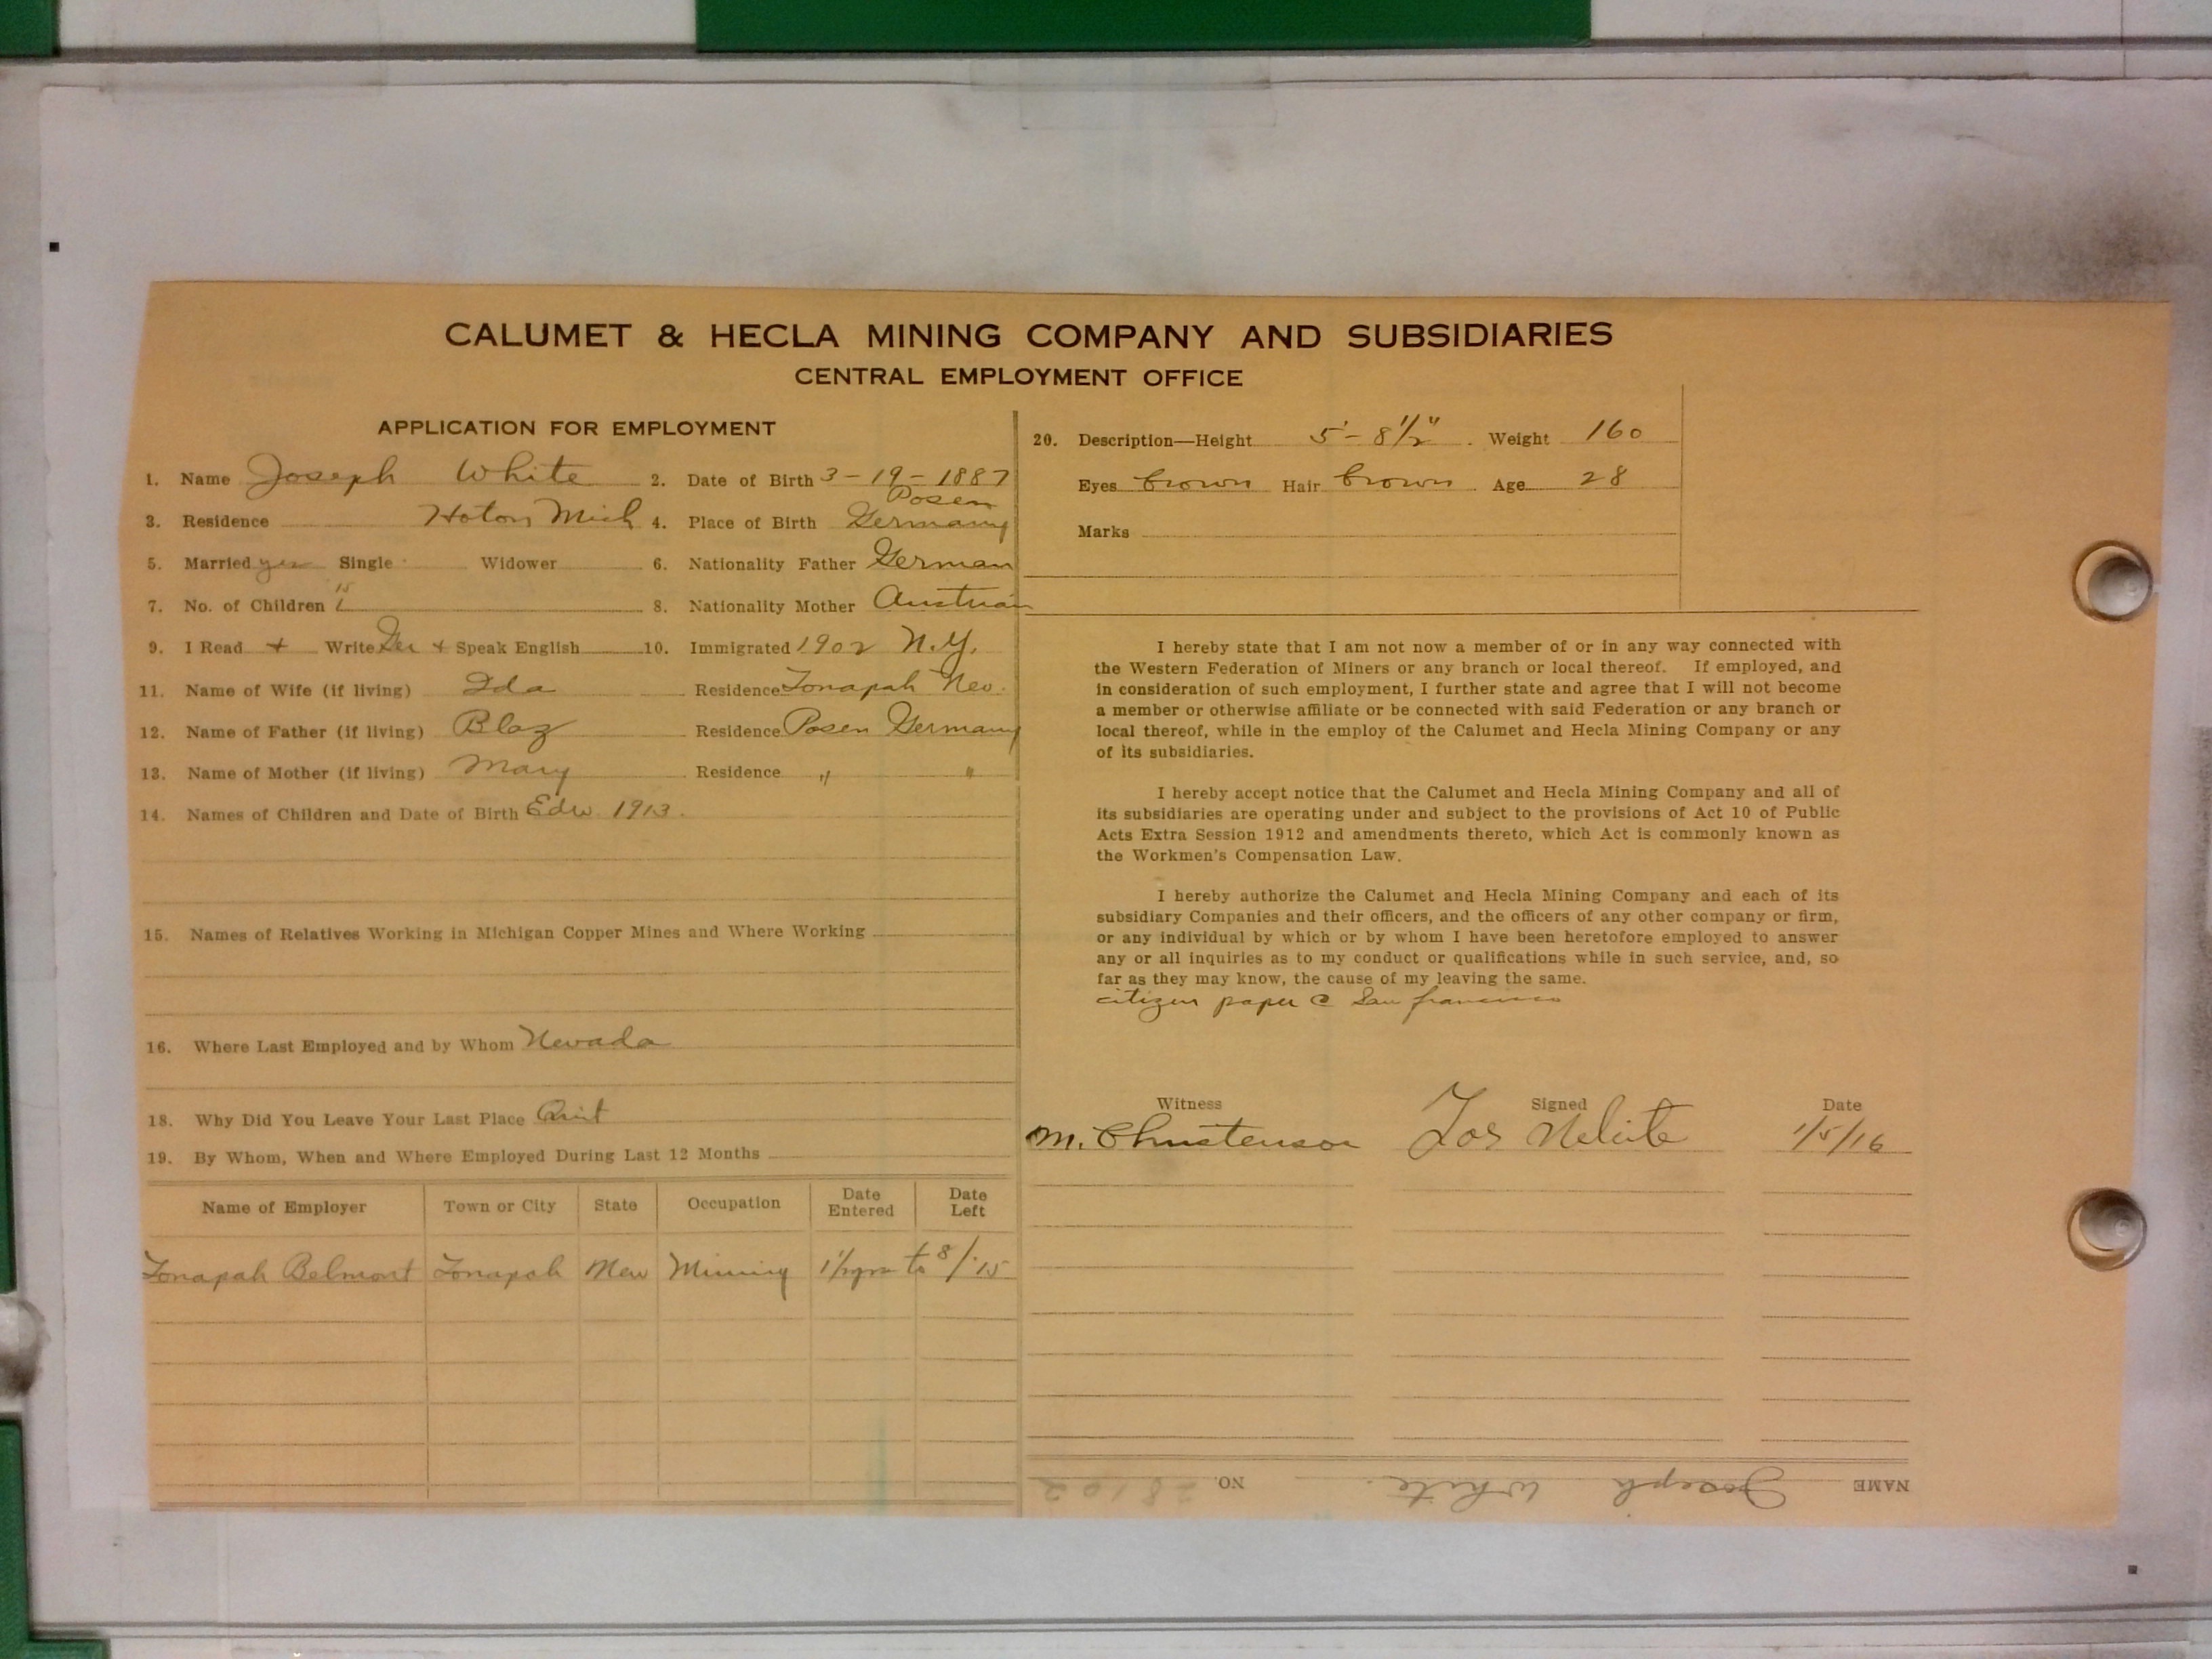 CALUMET & HECLA MINING COMPANY AND SUBSIDIARIES
CENTRAL EMPLOYMENT OFFICE
APPLICATION FOR EMPLOYMENT
1. Name Joseph White 2. Date of Birth 3-19-1887
3. Residence Hoton Mich 4. Place of Birth Posen Germany
5. Married yes Single Widower 6. Nationality Father German
7. No. of Children 8. Nationality Mother Austrian
9. I Read + Write Ger + Speak English 10. Immigrated 1902 N.Y.
11. Name of Wife (if living) Ida Residence Tonapah Nev.
12. Name of Father (if living) Blaz Residence Posen Germany
13. Name of Mother (if living) Mary Residence " "
14. Names of Children and Date of Birth Edw 1913.
15. Names of Relatives Working in Michigan Copper Mines and Where Working
16. Where Last Employed and by Whom Nevada
18. Why Did You Leave Your Last Place Quit
19. By Whom, When and Where Employed During Last 12 Months
Name of Employer Town or City State Occupation Date Entered Date Left
Tonapah Belmont Tonapah Nev Mining 1½yrs to 8/15
20. Description—Height 5'-8½" Weight 160
Eyes brown Hair brown Age 28
Marks
I hereby state that I am not now a member of or in any way connected with
the Western Federation of Miners or any branch or local thereof. If employed, and
in consideration of such employment, I further state and agree that I will not become
a member or otherwise affiliate or be connected with said Federation or any branch or
local thereof, while in the employ of the Calumet and Hecla Mining Company or any
of its subsidiaries.
I hereby accept notice that the Calumet and Hecla Mining Company and all of
its subsidiaries are operating under and subject to the provisions of Act 10 of Public
Acts Extra Session 1912 and amendments thereto, which Act is commonly known as
the Workmen's Compensation Law.
I hereby authorize the Calumet and Hecla Mining Company and each of its
subsidiary Companies and their officers, and the officers of any other company or firm,
or any individual by which or by whom I have been heretofore employed to answer
any or all inquiries as to my conduct or qualifications while in such service, and, so
far as they may know, the cause of my leaving the same.
citizen paper @ San francisco
Witness Signed Date
M. Christenson Jos White 1/5/16
NAME Joseph White. NO. 28102